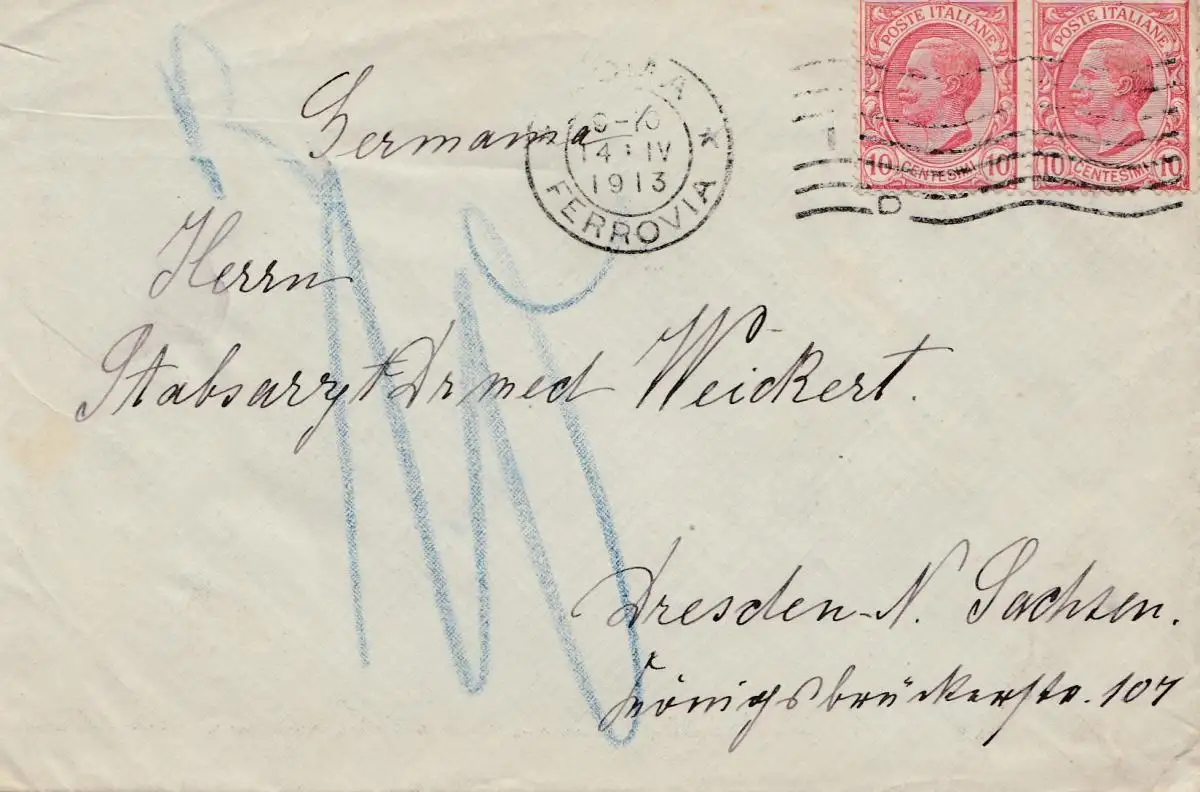 POSTE ITALIANE
POSTE ITALIANE
10 CENTESIMI 10
10 CENTESIMI 10
ROMA
14 · IV
1913
FERROVIA
D
Germania
Herrn
Stabsarzt Dr med Weickert.
Dresden-N. Sachsen.
Königsbrückerstr. 107